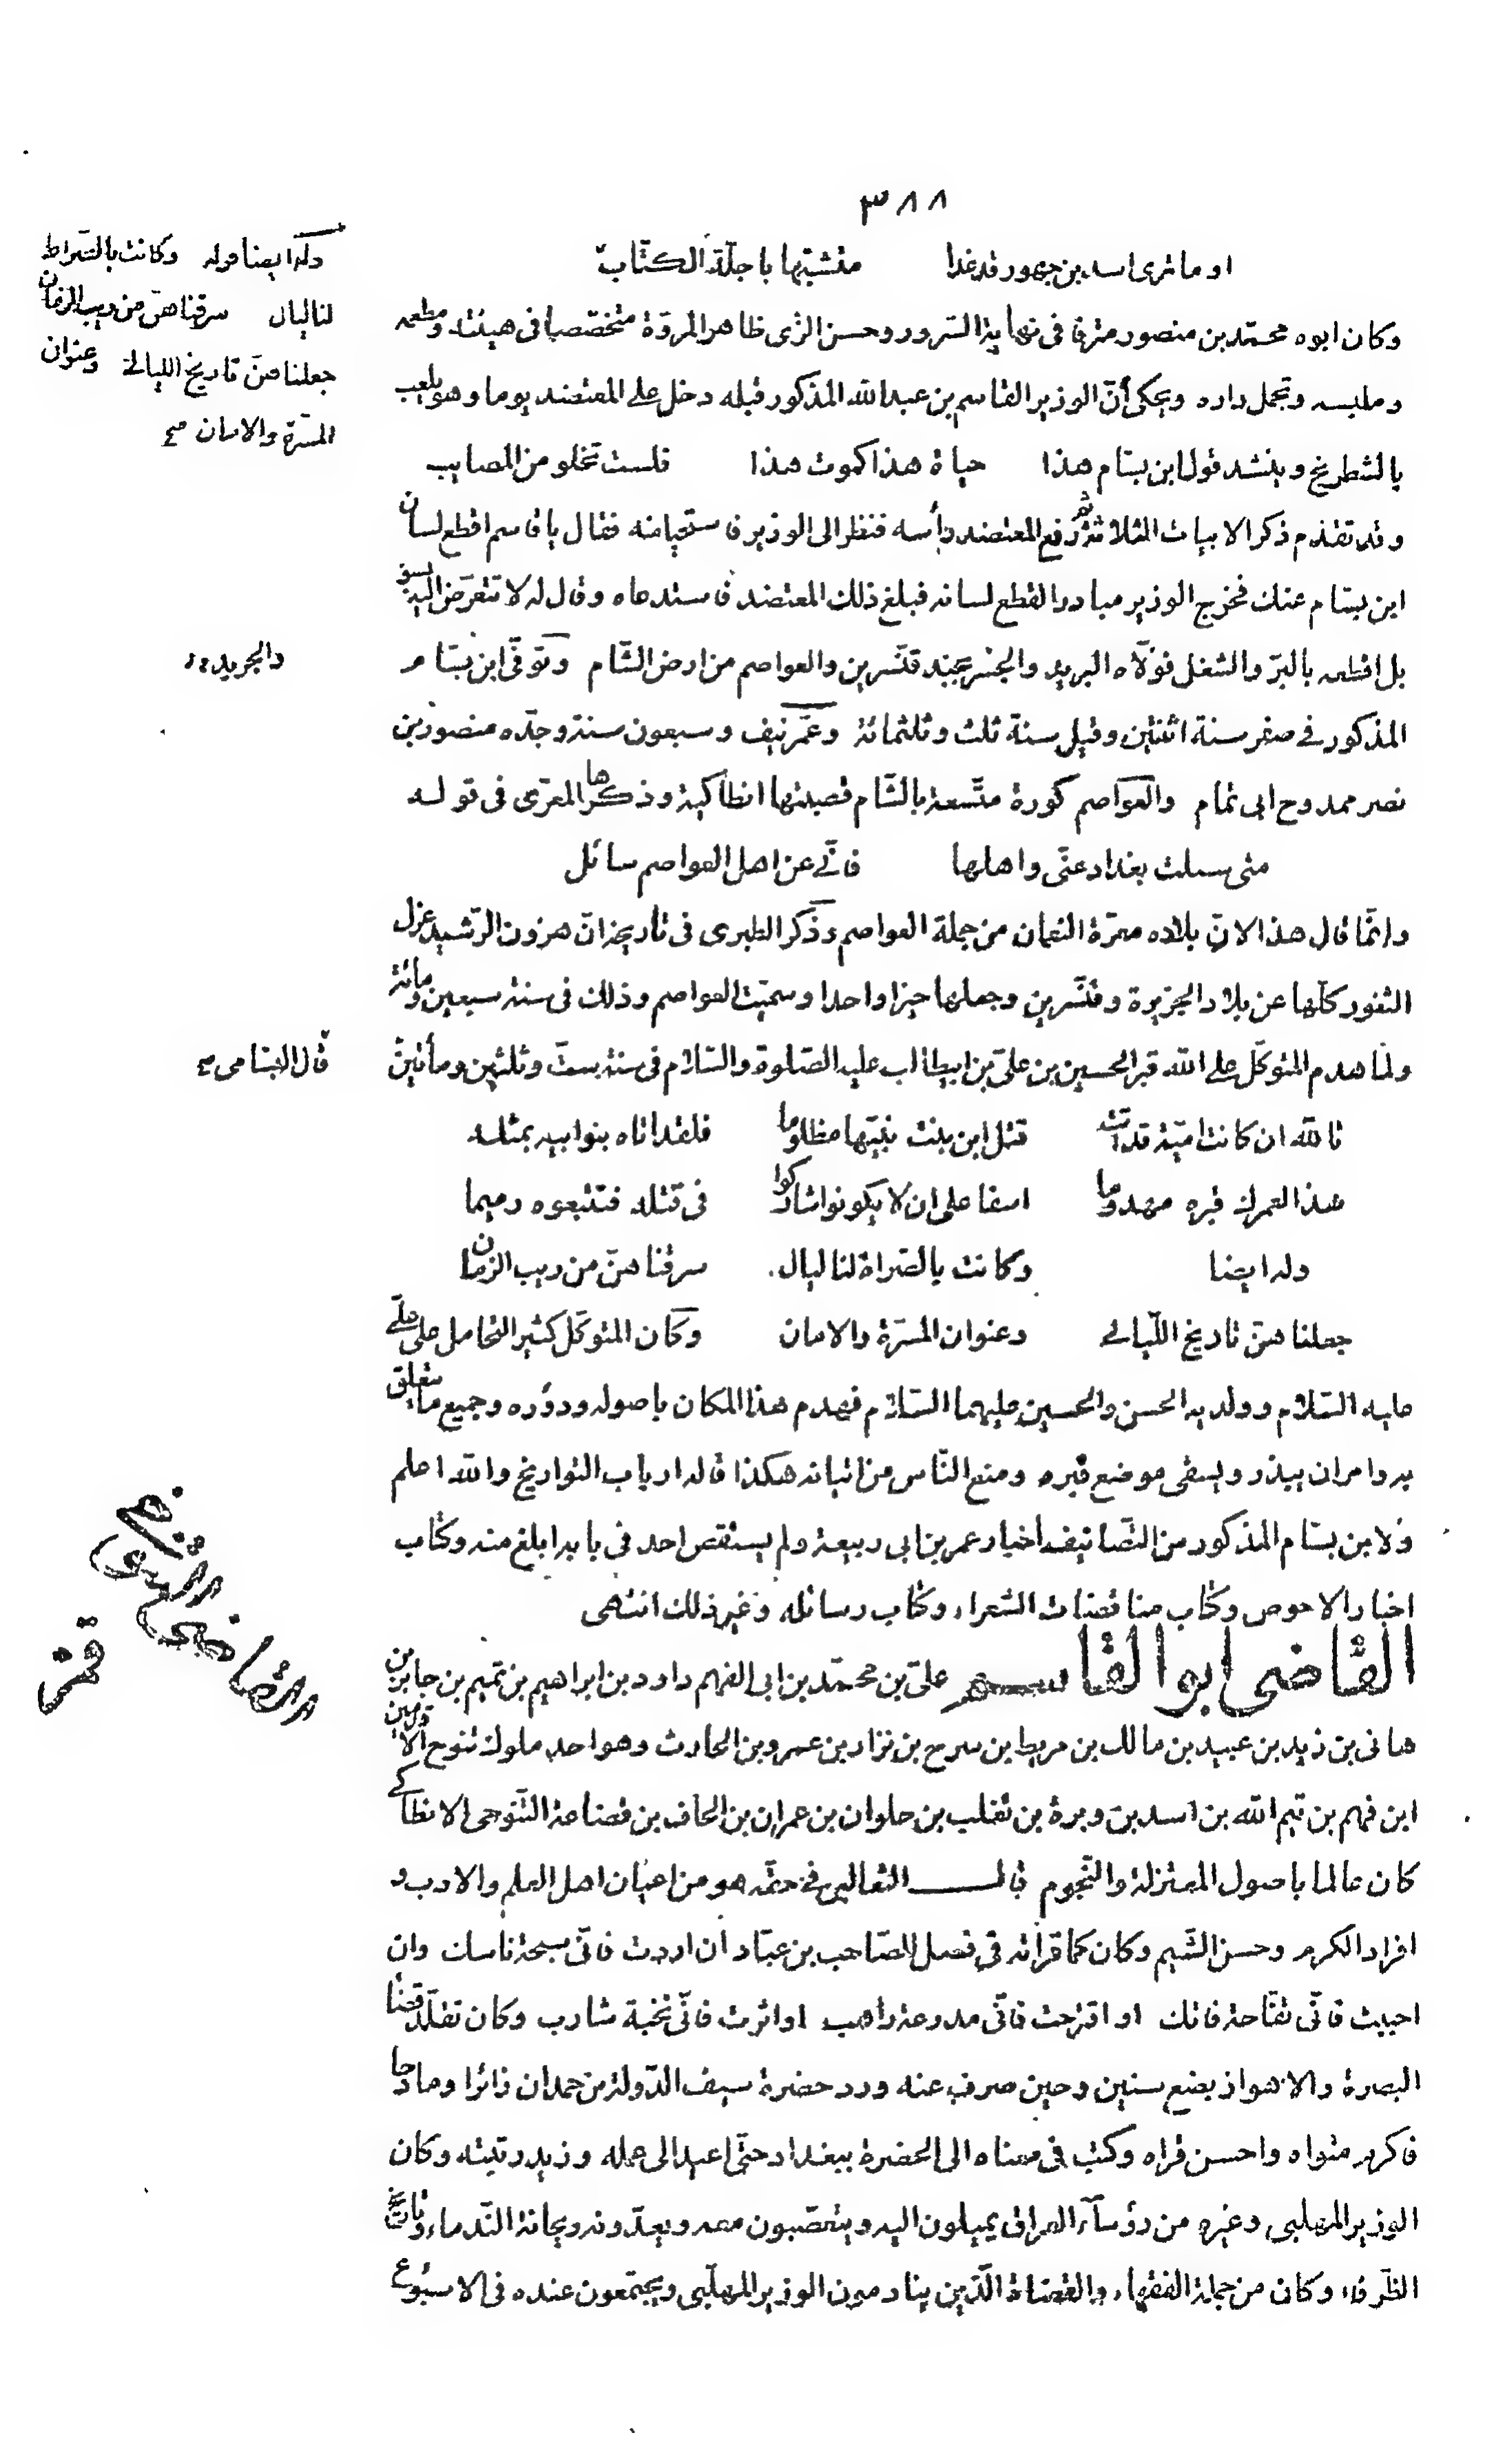 ٣٨٨
او ما ترى اسد بن جهور قد غدا متشبّها باجلّة الكتّاب
وكان ابوه محمّد بن منصور مترفا في نهاية السّرور وحسن الزّى ظاهر المروّة متخصّصا في هيئته ومطعمه
وملبسه وتجمل داره ويحكى أنّ الوزير القاسم بن عبد الله المذكور قبله دخل على المعتضد يوما وهو يلعب
بالشطرنج وينشد قول ابن بسّام هذا حياة هذا كموت هذا فلست تخلو من المصايب
وقد تقدّم ذكر الابيات الثلاثة ثم رفع المعتضد رأسه فنظر الى الوزير فاستحيا منه فقال يا قاسم اقطع لسان
ابن بسّام عنك فخرج الوزير مبادرا لقطع لسانه فبلغ ذلك المعتضد فاستدعاه وقال له لا تتعرّض اليه بسوء
بل اقطعه بالبرّ والشغل فولّاه البريد والجسر بجند قنّسرين والعواصم من ارض الشّام وتوفّى ابن بسّام
المذكور في صفر سنة اثنتين وقيل سنة ثلث وثلثمائة وعمّر نيف وسبعون سنة وجدّه منصور بن
نصر ممدوح ابى تمام والعواصم كورة متّسعة بالشّام قصبتها انطاكية وذكرها المعرّى في قوله
متى سىلت بغداد عنّى واهلها فانّى عن اهل العواصم سائل
وانّما قال هذا لانّ بلاده معرّة النعمان من جملة العواصم وذكر الطبرى في تأريخه انّ هرون الرّشيد عزل
الثغور كلّها عن بلاد الجزيرة وقنّسرين وجعلها حيزا واحدا وسميّت العواصم وذلك في سنة سبعين ومائة
ولمّا هدم المتوكّل على الله قبر الحسين بن علىّ بن ابيطالب عليه الصّلوة والسّلام في سنة ستّ وثلثين ومأتين
تالله ان كانت اميّة قد اتت قتل ابن بنت نبيّها مظلوما فلقد اتاه بنو ابيه بمثله
هذا لعمرك قبره مهدوما اسفا على ان لا يكونوا شاركوا في قتله فتتبعوه رميما
وله ايضا وكانت بالصّراة لنا ليال سرقناهنّ من ريب الزمان
جعلناهنّ تاريخ اللّيالى وعنوان المسرّة والامان وكان المتوكّل كثير التحامل على علىّ
عليه السّلام وولديه الحسن والحسين عليهما السّلام فهدم هذا المكان باصوله ودوره وجميع ما يتعلق
به وامر ان يبذر ويسقى موضع قبره ومنع النّاس من اتيانه هكذا قاله ارباب التواريخ والله اعلم
ولابن بسّام المذكور من التّصانيف اخبار عمر بن ابى ربيعة ولم يستقص احد في بابه ابلغ منه وكتاب
اخبار الاحوص وكتاب مناقضات الشعراء وكتاب رسائله وغير ذلك انتهى
القاضى ابو القاسم علىّ بن محمّد بن ابى الفهم داود بن ابراهيم بن تميم بن جابر بن
هانى بن زيد بن عبيد بن مالك بن مريط بن سرح بن نزار بن عمرو بن الحارث وهو احد ملوك تنوخ الاقدمين
ابن فهم بن تيم الله بن اسد بن وبرة بن تغلب بن حلوان بن عمران بن الحاف بن قضاعة التّنوخى الانطاكى
كان عالما باصول المعتزلة والنّجوم قال الثعالبى في حقّه هو من اعيان اهل العلم والادب و
افراد الكرم وحسن الشّيم وكان كما قرأته في فصل للصّاحب بن عبّاد ان اردت فانّى سبحة ناسك وان
احببت فانّى تفّاحة فاتك او اقترحت فانّى مدرعة راهب او اثرت فانّى نخبة شارب وكان تقلّد قضا
البصرة والاهواز بضع سنين وحين صرف عنه ورد حضرة سيف الدّولة من حمدان زائرا ومادحا
فاكرم مثواه واحسن قراه وكتب في معناه الى الحضرة ببغداد حتّى اعيد الى عمله وزيد رتبته وكان
الوزير المهلبى وغيره من رؤسآء العراق يميلون اليه ويتعصّبون معه ويعدّونه ريحانة النّدماء وتاريخ
الظّرفاء وكان من جملة الفقهاء والقضاة الّذين ينادمون الوزير المهلّبى ويجتمعون عنده في الاسبوع
وله ايضا قوله وكانت بالصّراط
لنا ليال سرقناهنّ من ريب الزمان
جعلناهنّ تاريخ الليالى وعنوان
المسرّة والامان صح
والجريد
قال البسّامى صح
القاضى التنوخى